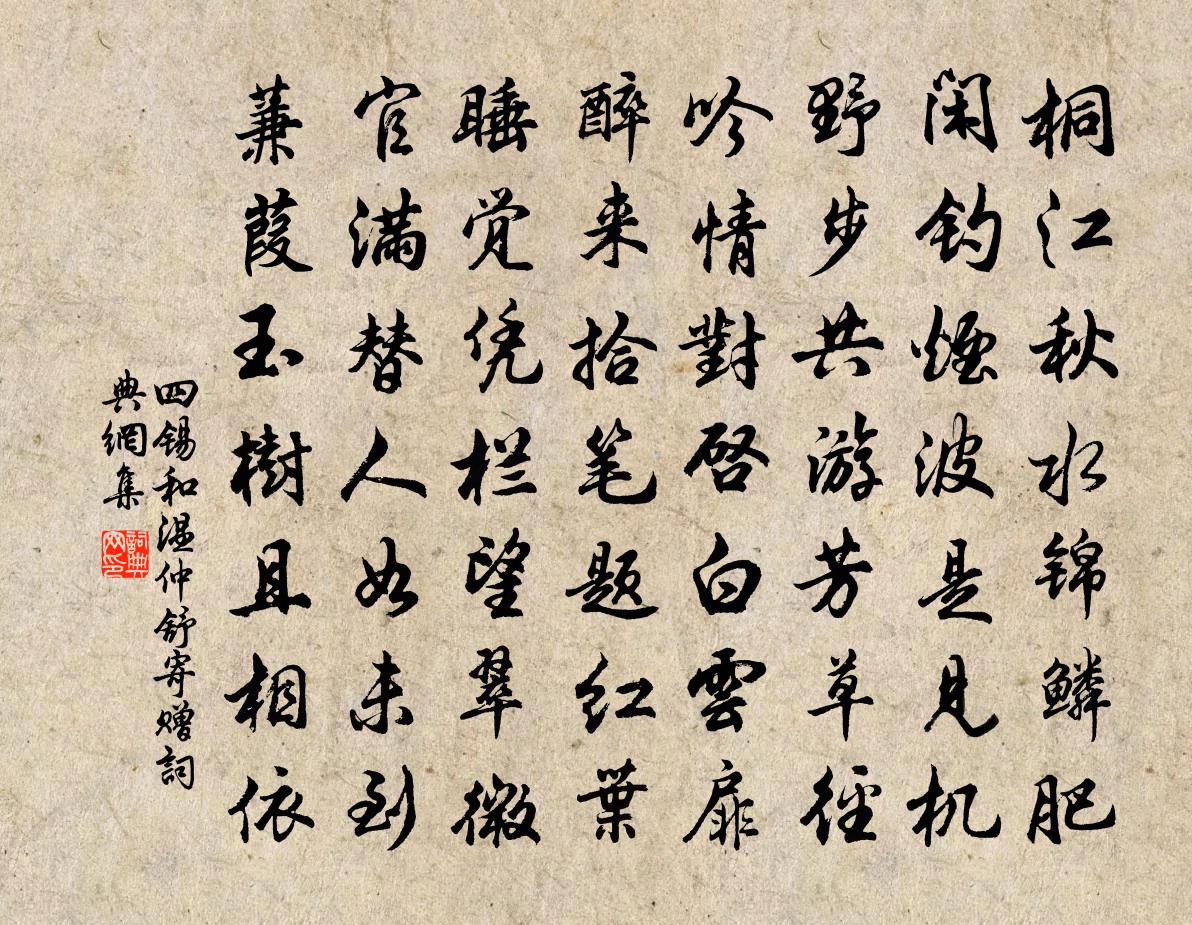 桐江秋水锦鳞肥
闲钓烟波是见机
野步共游芳草径
吟情對启白雲扉
醉来拾笔题红葉
睡觉凭栏望翠微
官满替人如未到
蒹葭玉樹且相依
四锡和温仲舒寄赠詞
典網集
詞典网印